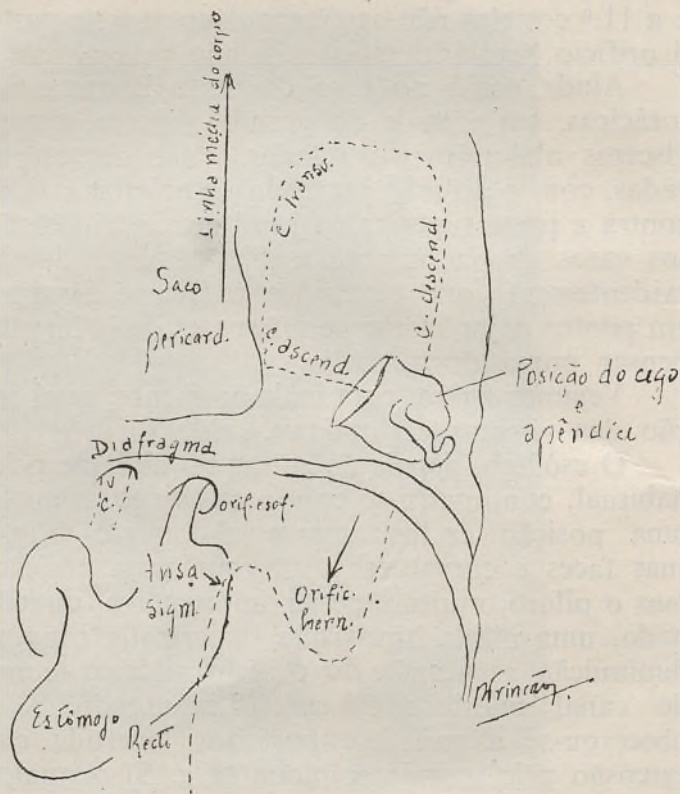 Linha média do corpo
C. transv.
C. descend.
Saco
pericard.
C. ascend.
Posição do cego
e
apêndice
Diafragma
V
C.
orif. esof.
Ansa
sigm.
Orific.
hern.
Estômago
Recto